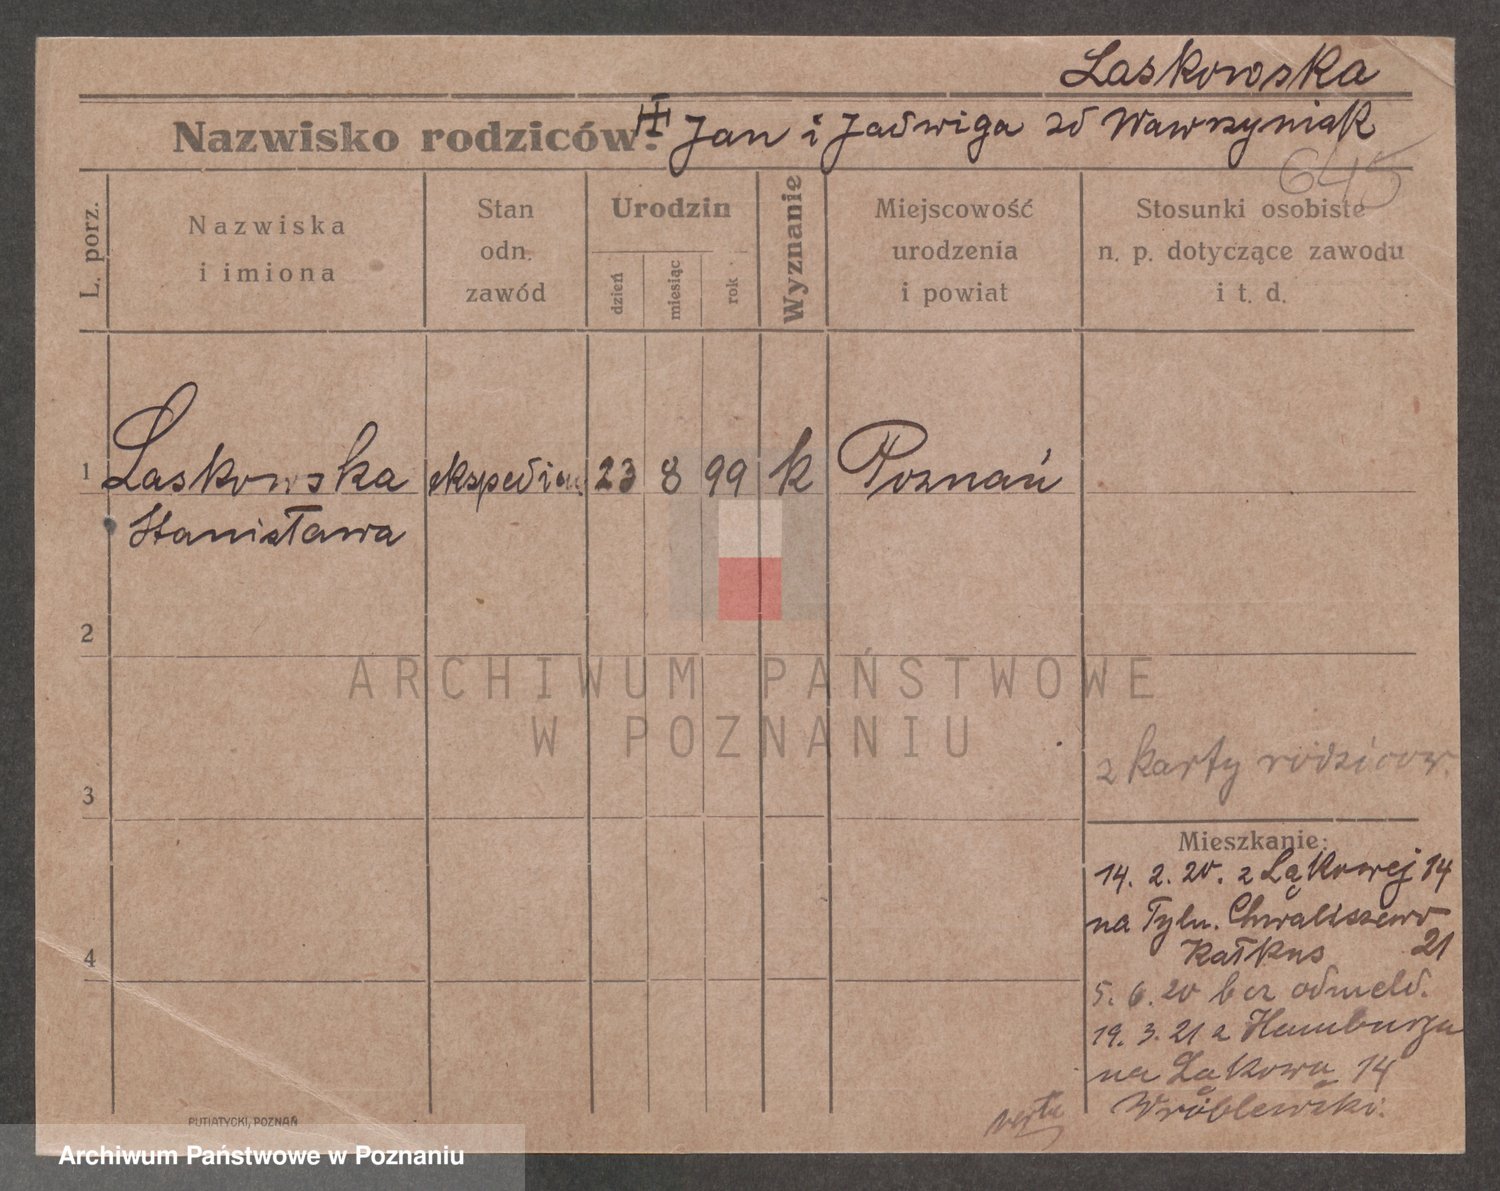 Laskowska
Nazwisko rodziców: Jan i Jadwiga zd Wawrzyniak
645
L. porz.
Nazwiska
i imiona
Stan
odn.
zawód
Urodzin
dzień
miesiąc
rok
Wyznanie
Miejscowość
urodzenia
i powiat
Stosunki osobiste
n. p. dotyczące zawodu
i t. d.
1 Laskowska ekspedien. 23 8 99 k Poznań
Stanisława
2
ARCHIWUM PAŃSTWOWE
W POZNANIU
z karty rodzicow.
3
Mieszkanie:
14. 2. 20. z Łąkowej 14
na Tyln. Chwaliszewo
Katkus 21
4
5. 6. 20 bez odmeld.
19. 3. 21 z Hamburga
na Łąkowa 14
Wróblewski.
verte
PUTIATYCKI, POZNAŃ
Archiwum Państwowe w Poznaniu